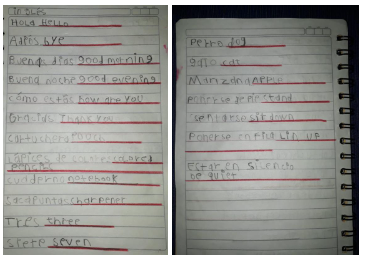 INGLES
Hola Hello
Adiós bye
Buenos días good morning
Buena noche good evening
cómo estás how are you
Gracias Thank you
cartuchera pouch
Lápices de colores colored
pencils
cuaderno notebook
Sacapuntas sharpener
Tres three
Siete seven
Perro dog
gato cat
Manzana Apple
Ponerse de pie stand
sentarse sit down
Ponerse en fila Lin up
Estar en silencio
be quiet